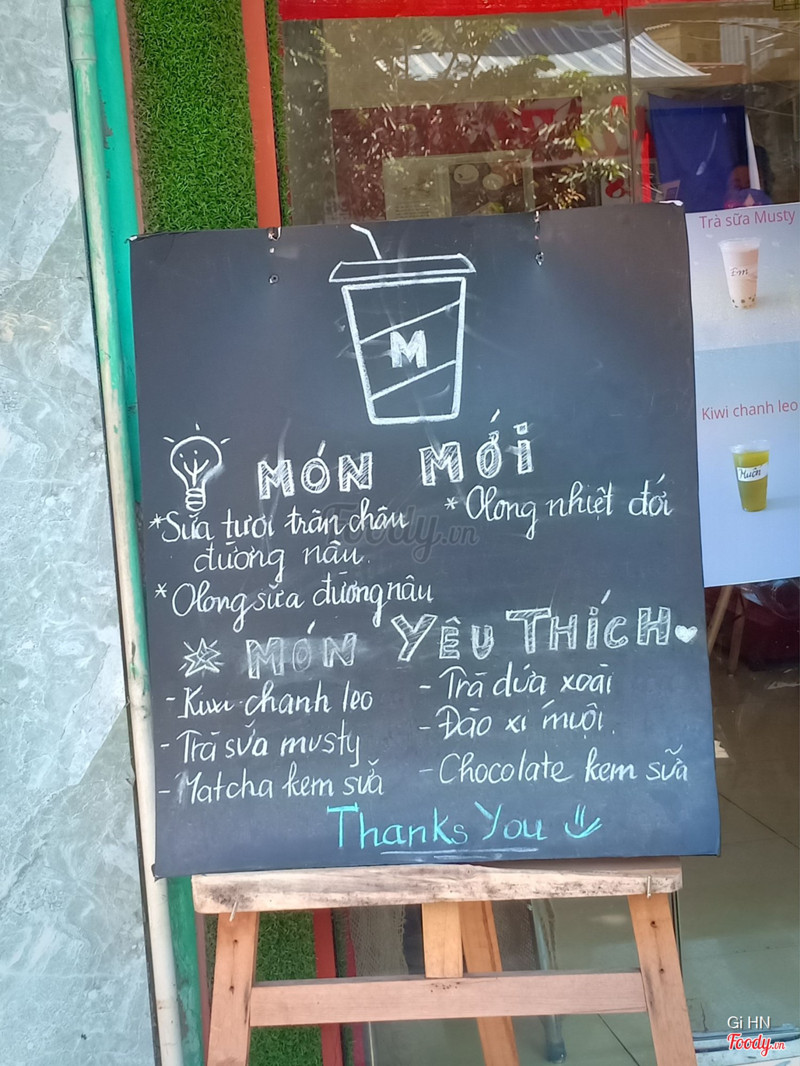 M
MÓN MỚI
*Sữa tươi trân châu
đường nâu.
* Olong nhiệt đới
* Olong sữa đường nâu
MÓN YÊU THÍCH
- Kiwi chanh leo
- Trà sữa musty
- Matcha kem sữa
- Trà dứa xoài
- Đào xí muội.
- Chocolate kem sữa
Thanks You
Trà sữa Musty
Êm
Kiwi chanh leo
Muồn
Foody.vn
Gi HN
Foody.vn